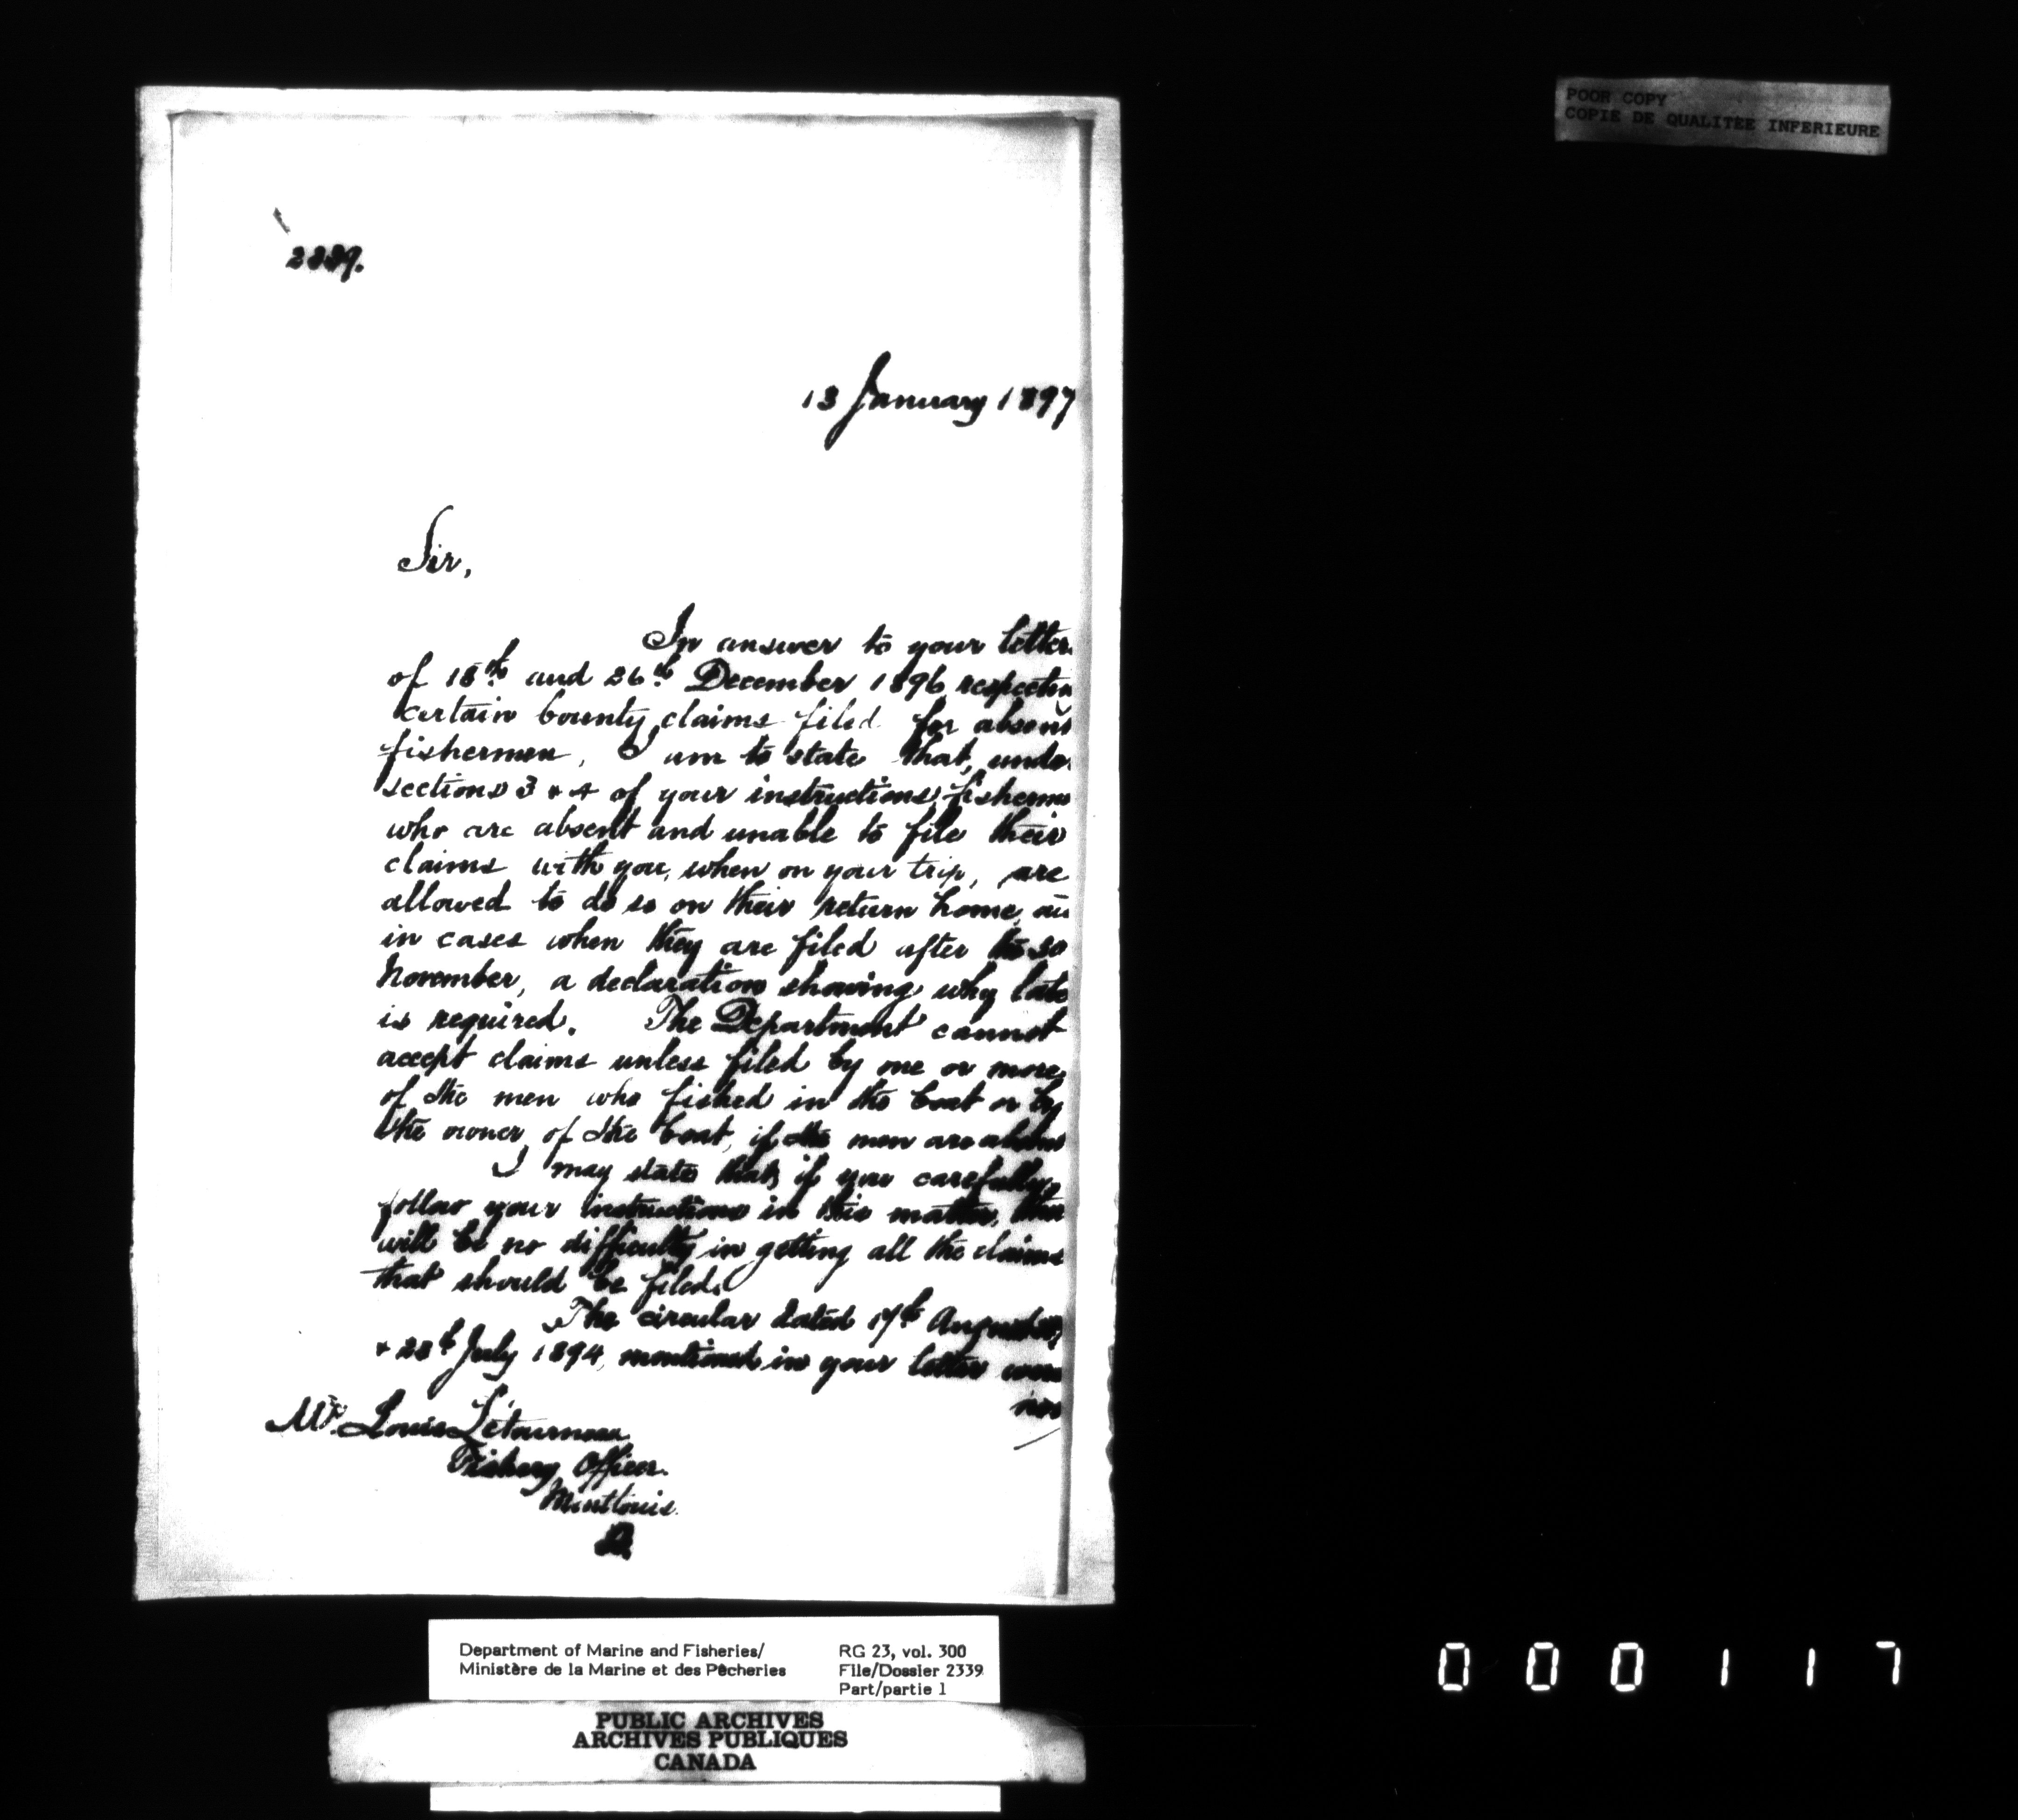 POOR COPY
COPIE DE QUALITEE INFERIEURE
2339.
13 January 1897
Sir,
In answer to your letter
of 18th and 26th December 1896, respectin
certain bounty claims filed for absent
fishermen, I am to state that, under
sections 3 & 4 of your instructions, fisherme
who are absent and unable to file their
claims with you, when on your trip, are
allowed to do so on their return home, an
in cases when they are filed after the 30
November, a declaration showing why late
is required. The Department cannot
accept claims unless filed by one or more
of the men who fished in the boat or by
the owner of the boat, if the men are absen
I may state that, if you carefully
follow your instructions in this matter, ther
will be no difficulty in getting all the claims
that should be filed.
The circular dated 17th
& 28th July 1894, mentioned in your letter
Mr. Louis Létourneau
Fishery Officer.
Montlouis.
Department of Marine and Fisheries/
Ministère de la Marine et des Pêcheries
RG 23, vol. 300
File/Dossier 2339
Part/partie 1
PUBLIC ARCHIVES
ARCHIVES PUBLIQUES
CANADA
000117